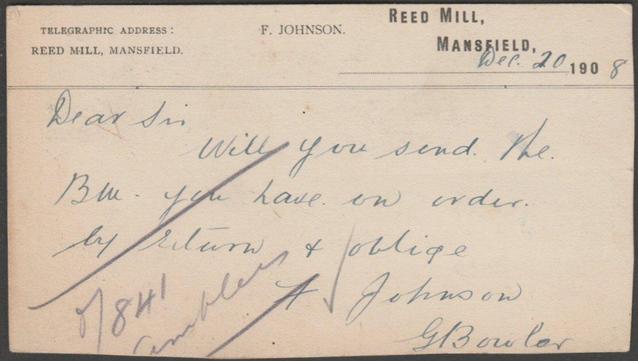 TELEGRAPHIC ADDRESS:
REED MILL, MANSFIELD.
F. JOHNSON.
REED MILL,
MANSFIELD,
Dec. 20 1908
Dear Sir
Will you send. the.
you have. on order.
by return & oblige
F Johnson
G Bowler
/841